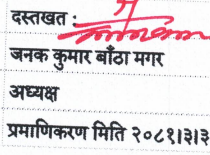 दस्तखत :
जनक कुमार बाँठा मगर
अध्यक्ष
प्रमाणिकरण मिति २०८१।३।३